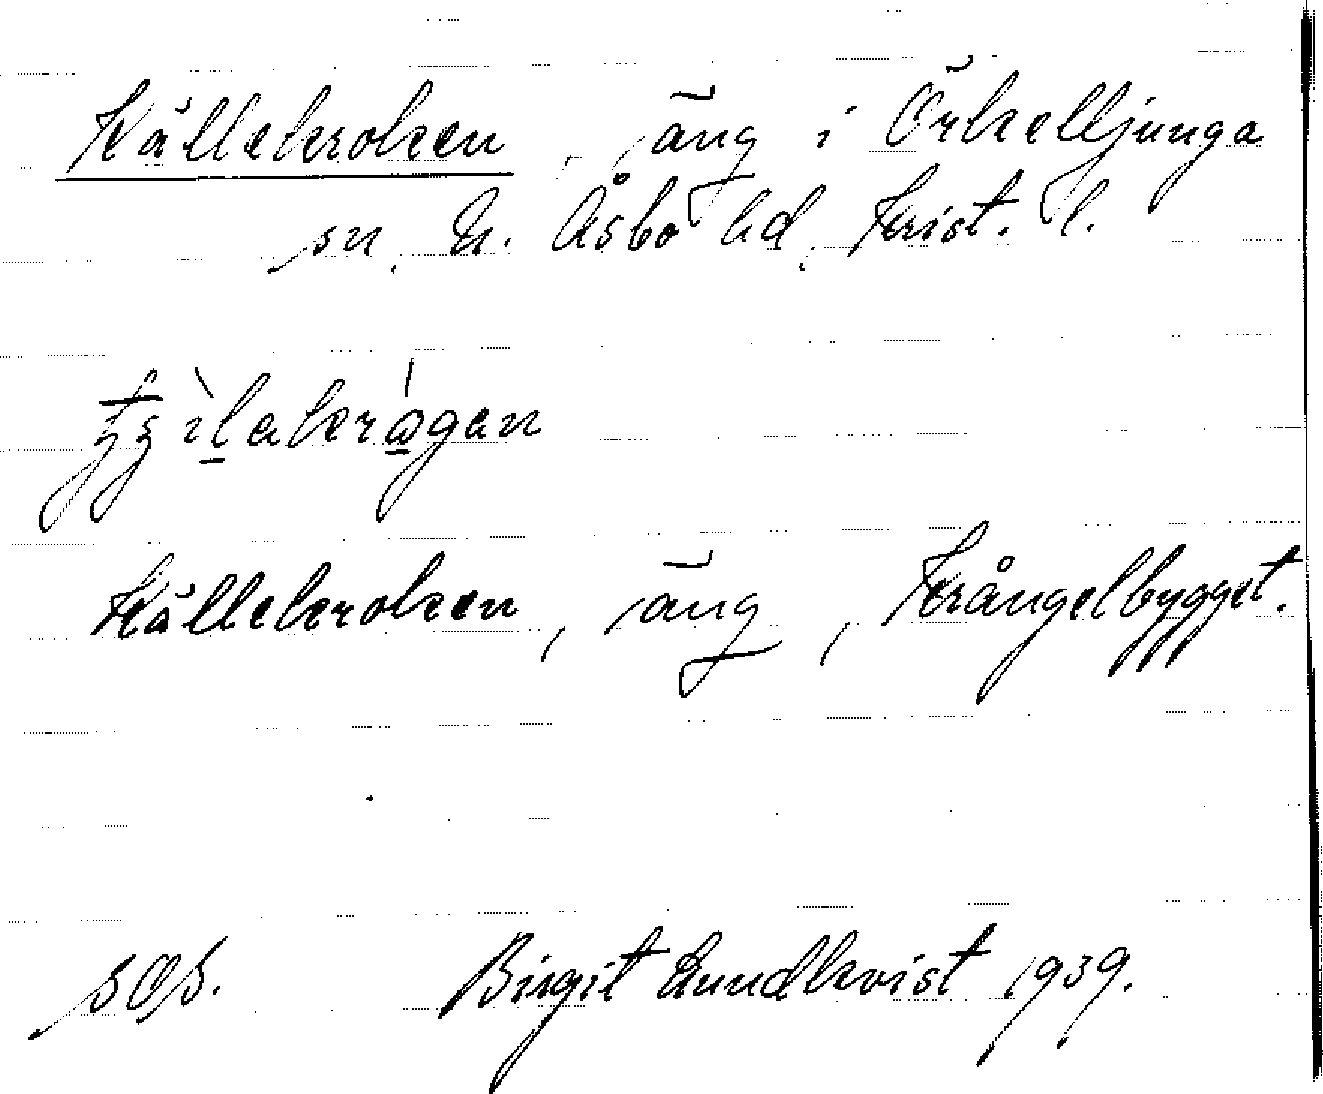 Källekroken, äng i Örkelljunga
sn. N. Åsbo hd. Krist. l.
Källekroken, äng, Krångelbygget.
Birgit Lundkvist 1939.